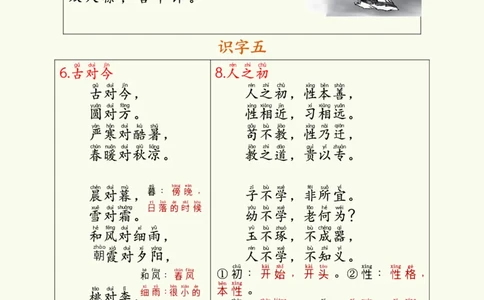 识字五
6.古对今
古对今，
圆对方。
严寒对酷暑，
春暖对秋凉。
晨对暮，
暮：傍晚，
日落的时候
雪对霜。
和风对细雨，
朝霞对夕阳，
和风：春风
细雨：很小的
桃对李，
8.人之初
人之初，性本善，
性相近，习相远。
苟不教，性乃迁，
教之道，贵以专。
子不学，非所宜。
幼不学，老何为？
玉不琢，不成器，
人不学，不知义。
①初：开始，开头。②性：性格，
本性。